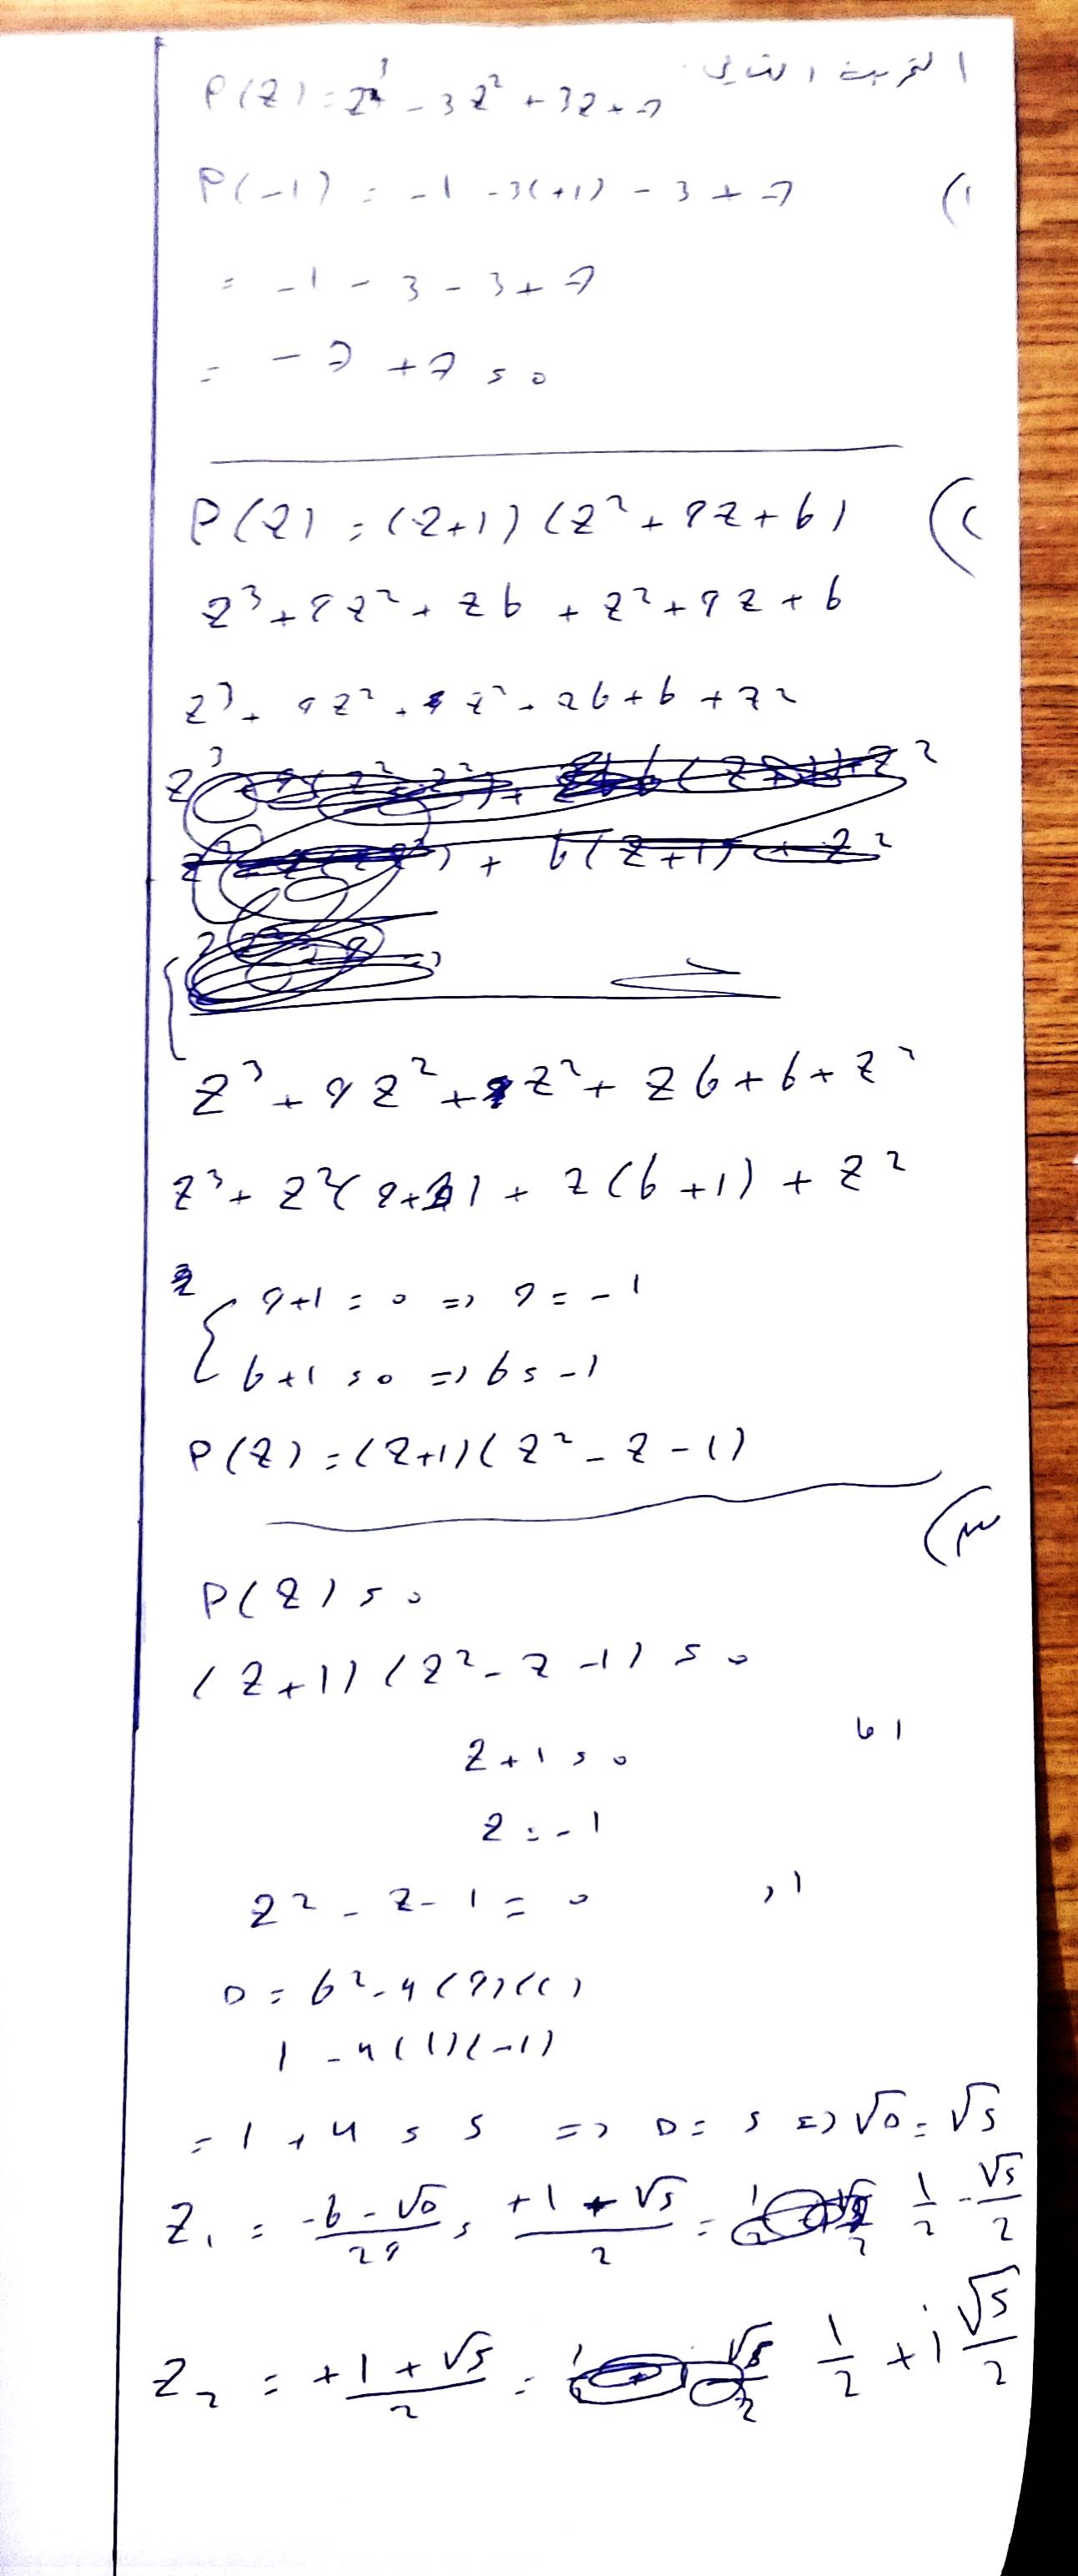 التمرين الثاني
P(Z) = Z³ - 3Z² + 3Z + 7
1)
P(-1) = -1 - 3(+1) - 3 + 7
= -1 - 3 - 3 + 7
= -7 + 7 = 0
2)
P(Z) = (Z+1)(Z² + aZ + b)
Z³ + aZ² + Zb + Z² + aZ + b
Z³ + aZ² + Z² + Zb + b + az
+ b(Z+1) + Z²
Z³ + aZ² + Z² + Zb + b + Z²
Z³ + Z²(a+1) + Z(b+1) + Z²
a+1 = 0 => a = -1
b+1 = 0 => b = -1
P(Z) = (Z+1)(Z² - Z - 1)
3)
P(Z) = 0
(Z+1)(Z² - Z - 1) = 0
Z+1 = 0
Z = -1
Z² - Z - 1 = 0
D = b² - 4(a)(c)
1 - 4(1)(-1)
= 1 + 4 = 5 => D = 5 => √D = √5
Z₁ = (-b - √D)/2a = (+1 + √5)/2 = 1/2 - √5/2
Z₂ = (+1 + √5)/2 = 1/2 + i √5/2